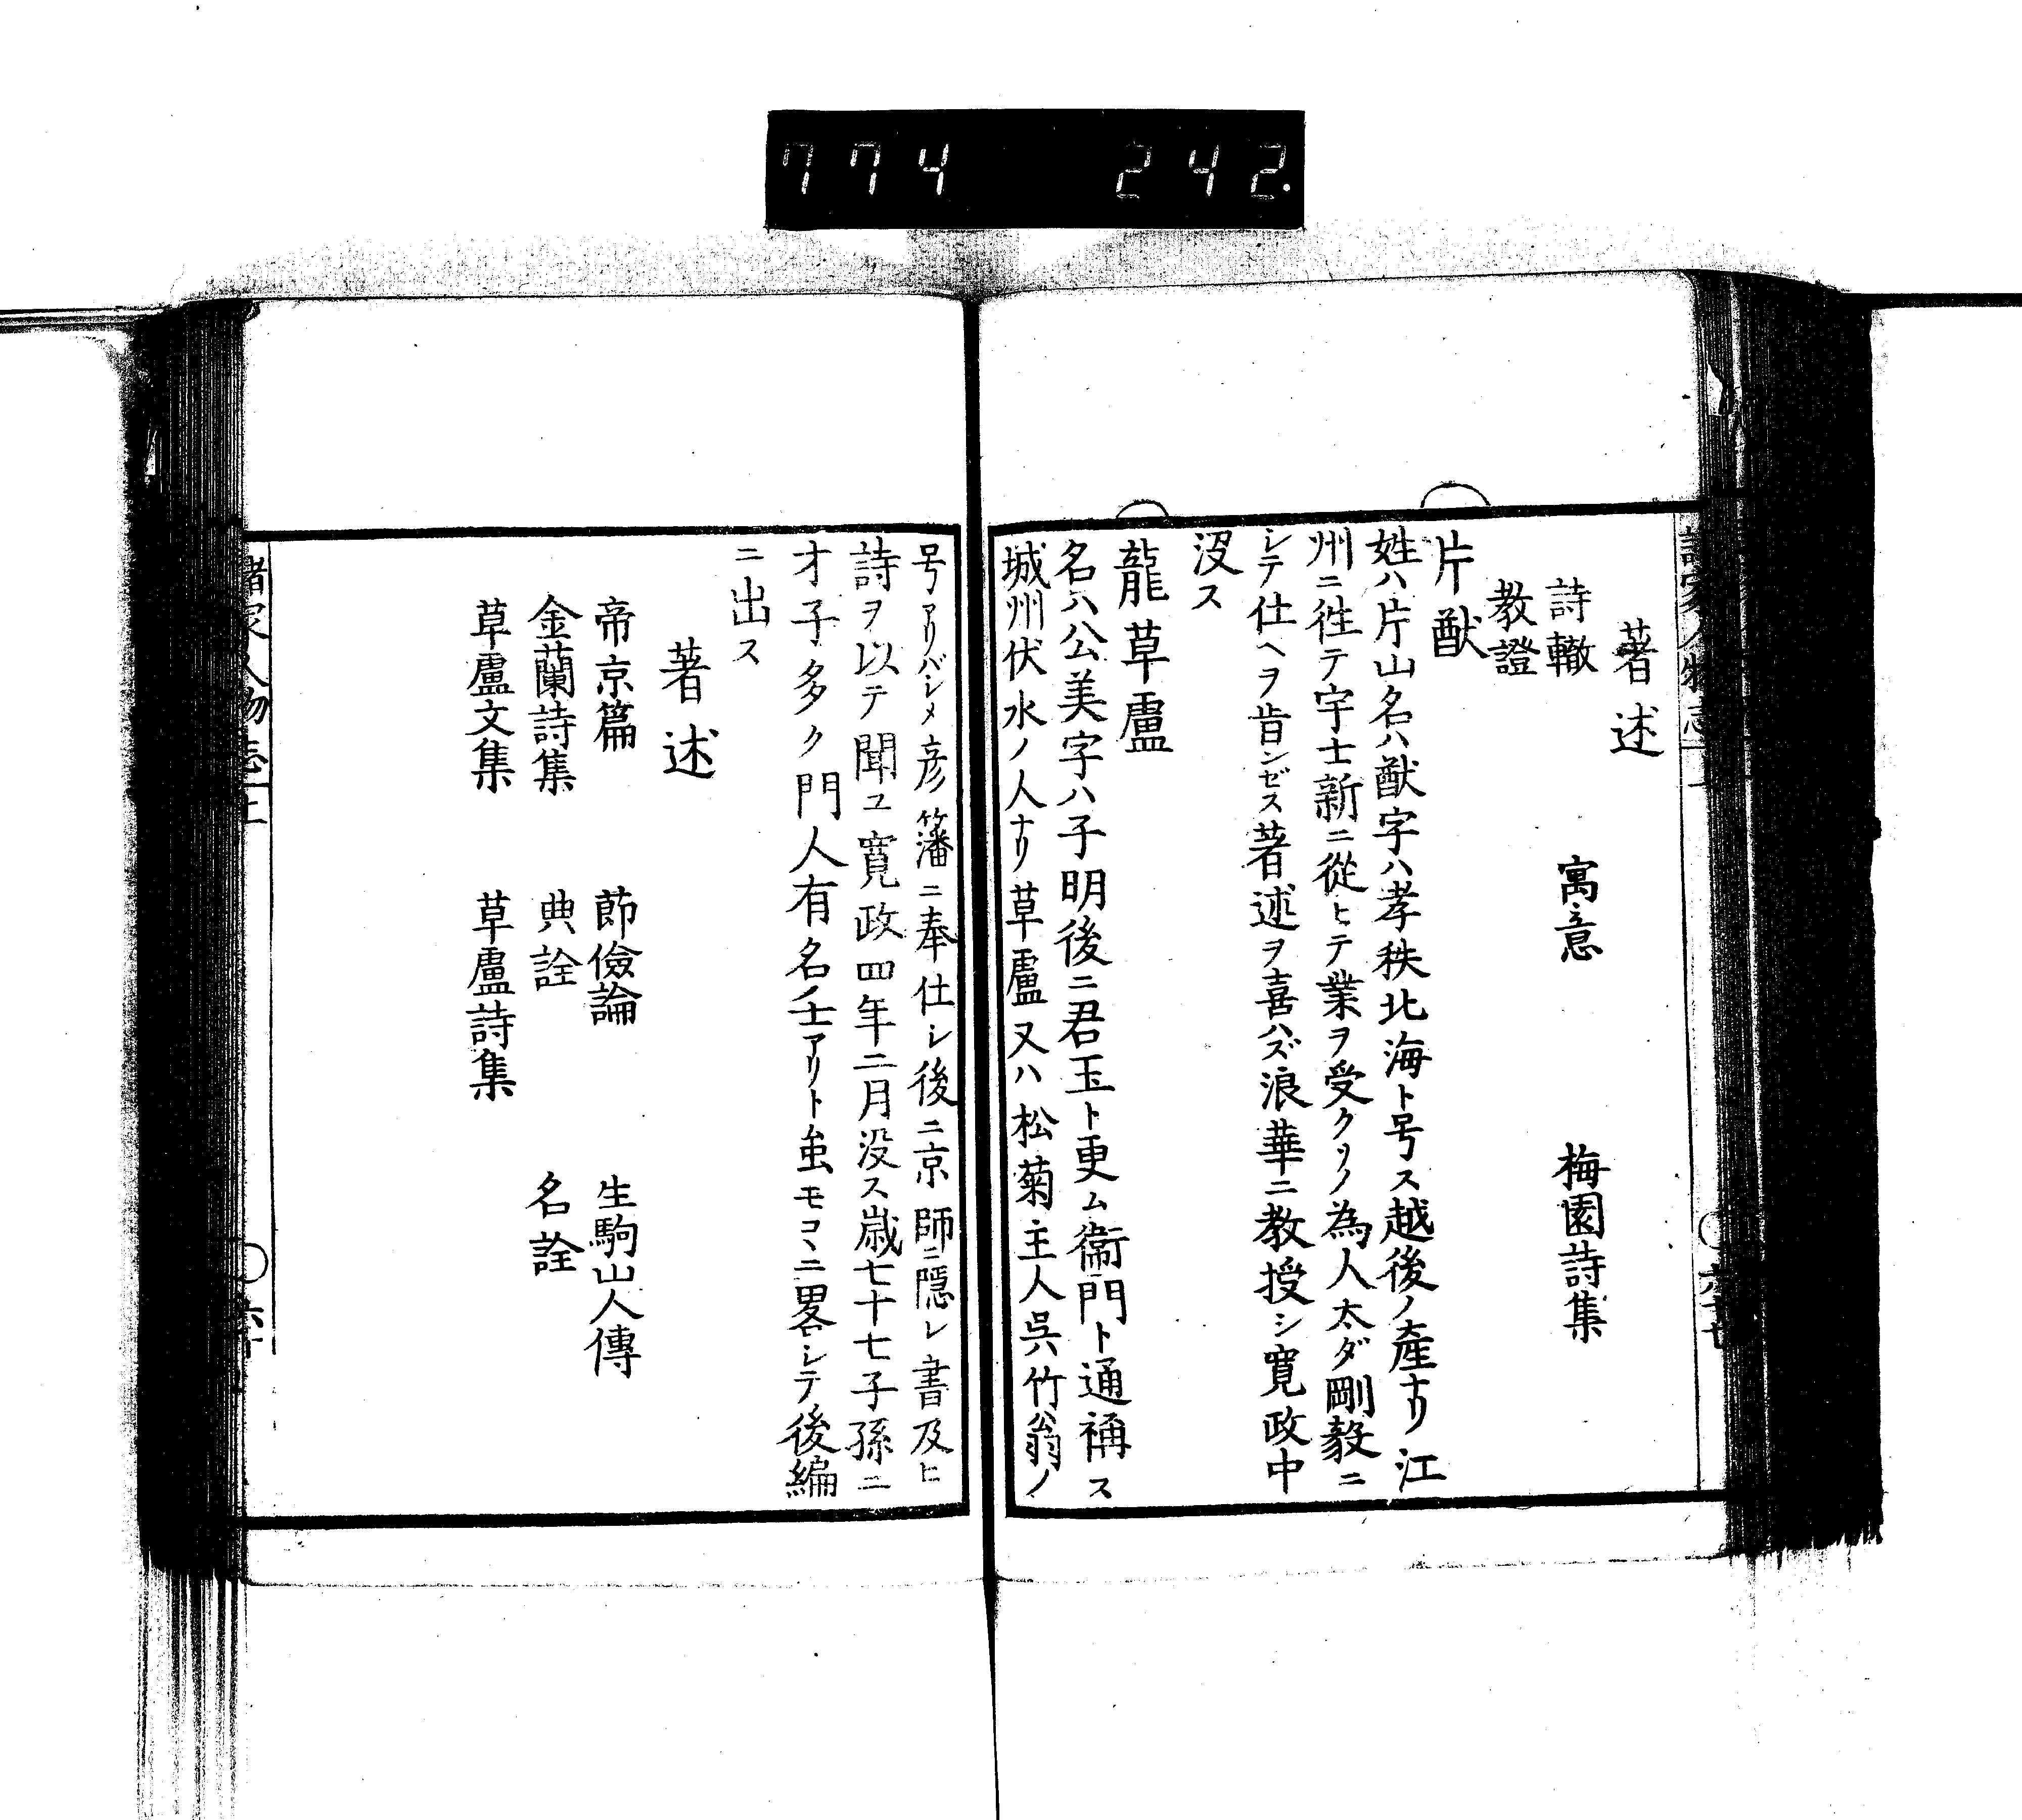 774 242.
著述
詩轍 寓意 梅園詩集
教證
片猷
姓ハ片山名ハ猷字ハ孝秩北海ト号ス越後ノ產ナリ江
州ニ徃テ宇士新ニ從ヒテ業ヲ受クソノ為人太ダ剛毅ニ
シテ仕ヘヲ肯ンゼス著述ヲ喜ハズ浪華ニ教授シ寛政中
没ス
龍草盧
名ハ公美字ハ子明後ニ君玉ト更ム衞門ト通稱ス
城州伏水ノ人ナリ草盧又ハ松菊主人呉竹翁ノ
号アリハシメ彦籓ニ奉仕シ後ニ京師ニ隠レ書及ヒ
詩ヲ以テ聞ユ寛政四年二月没ス歳七十七子孫ニ
才子多ク門人有名ノ士アリト虽モコヽニ畧シテ後編
ニ出ス
著述
帝京篇 節儉論 生駒山人傳
金蘭詩集 典詮 名詮
草盧文集 草盧詩集
諸家人物志上